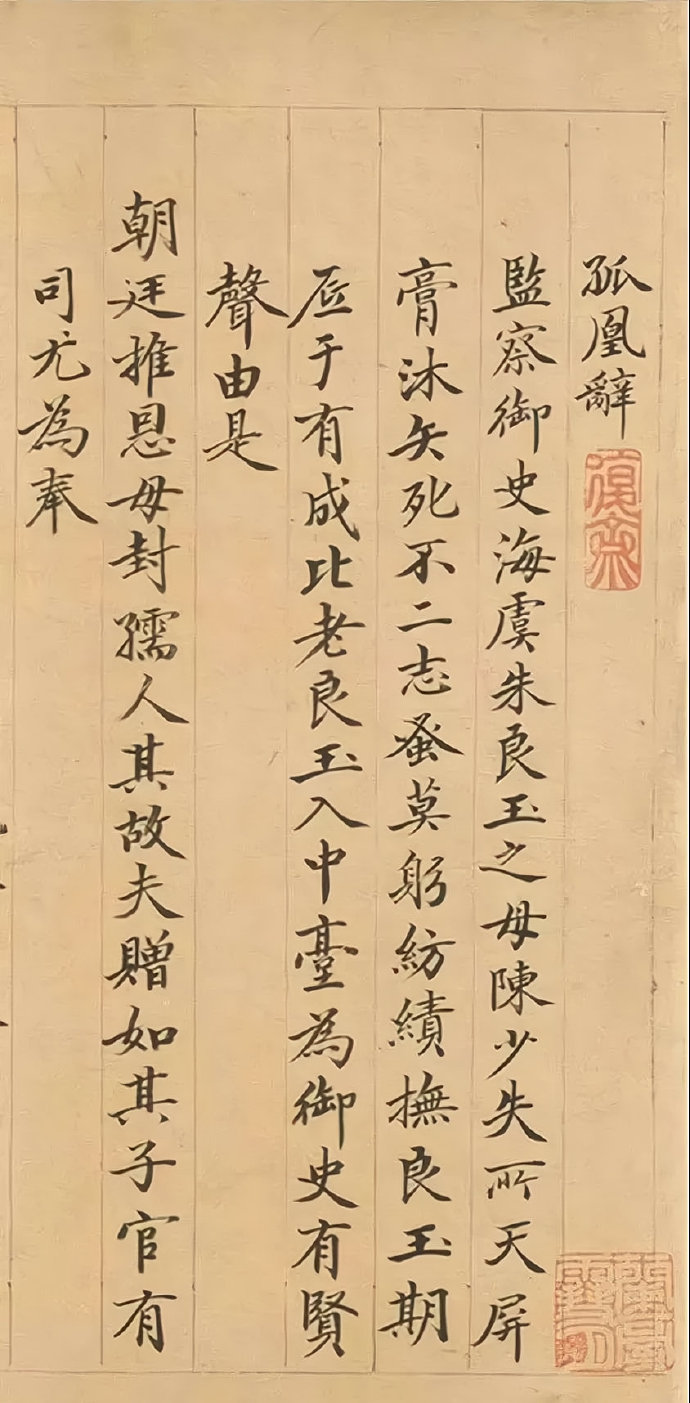 孤凰辭
監察御史海虞朱良玉之母陳少失所天屏
膏沐矢死不二志蚤莫躬紡績撫良玉期
底于有成比老良玉入中臺為御史有賢
聲由是
朝廷推恩母封孺人其故夫贈如其子官有
司尤為奉